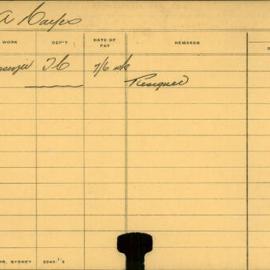 A Hayes
WORK DEP'T DATE OF PAY REMARKS
I.C. 7/6 wk
Resigned
SYDNEY